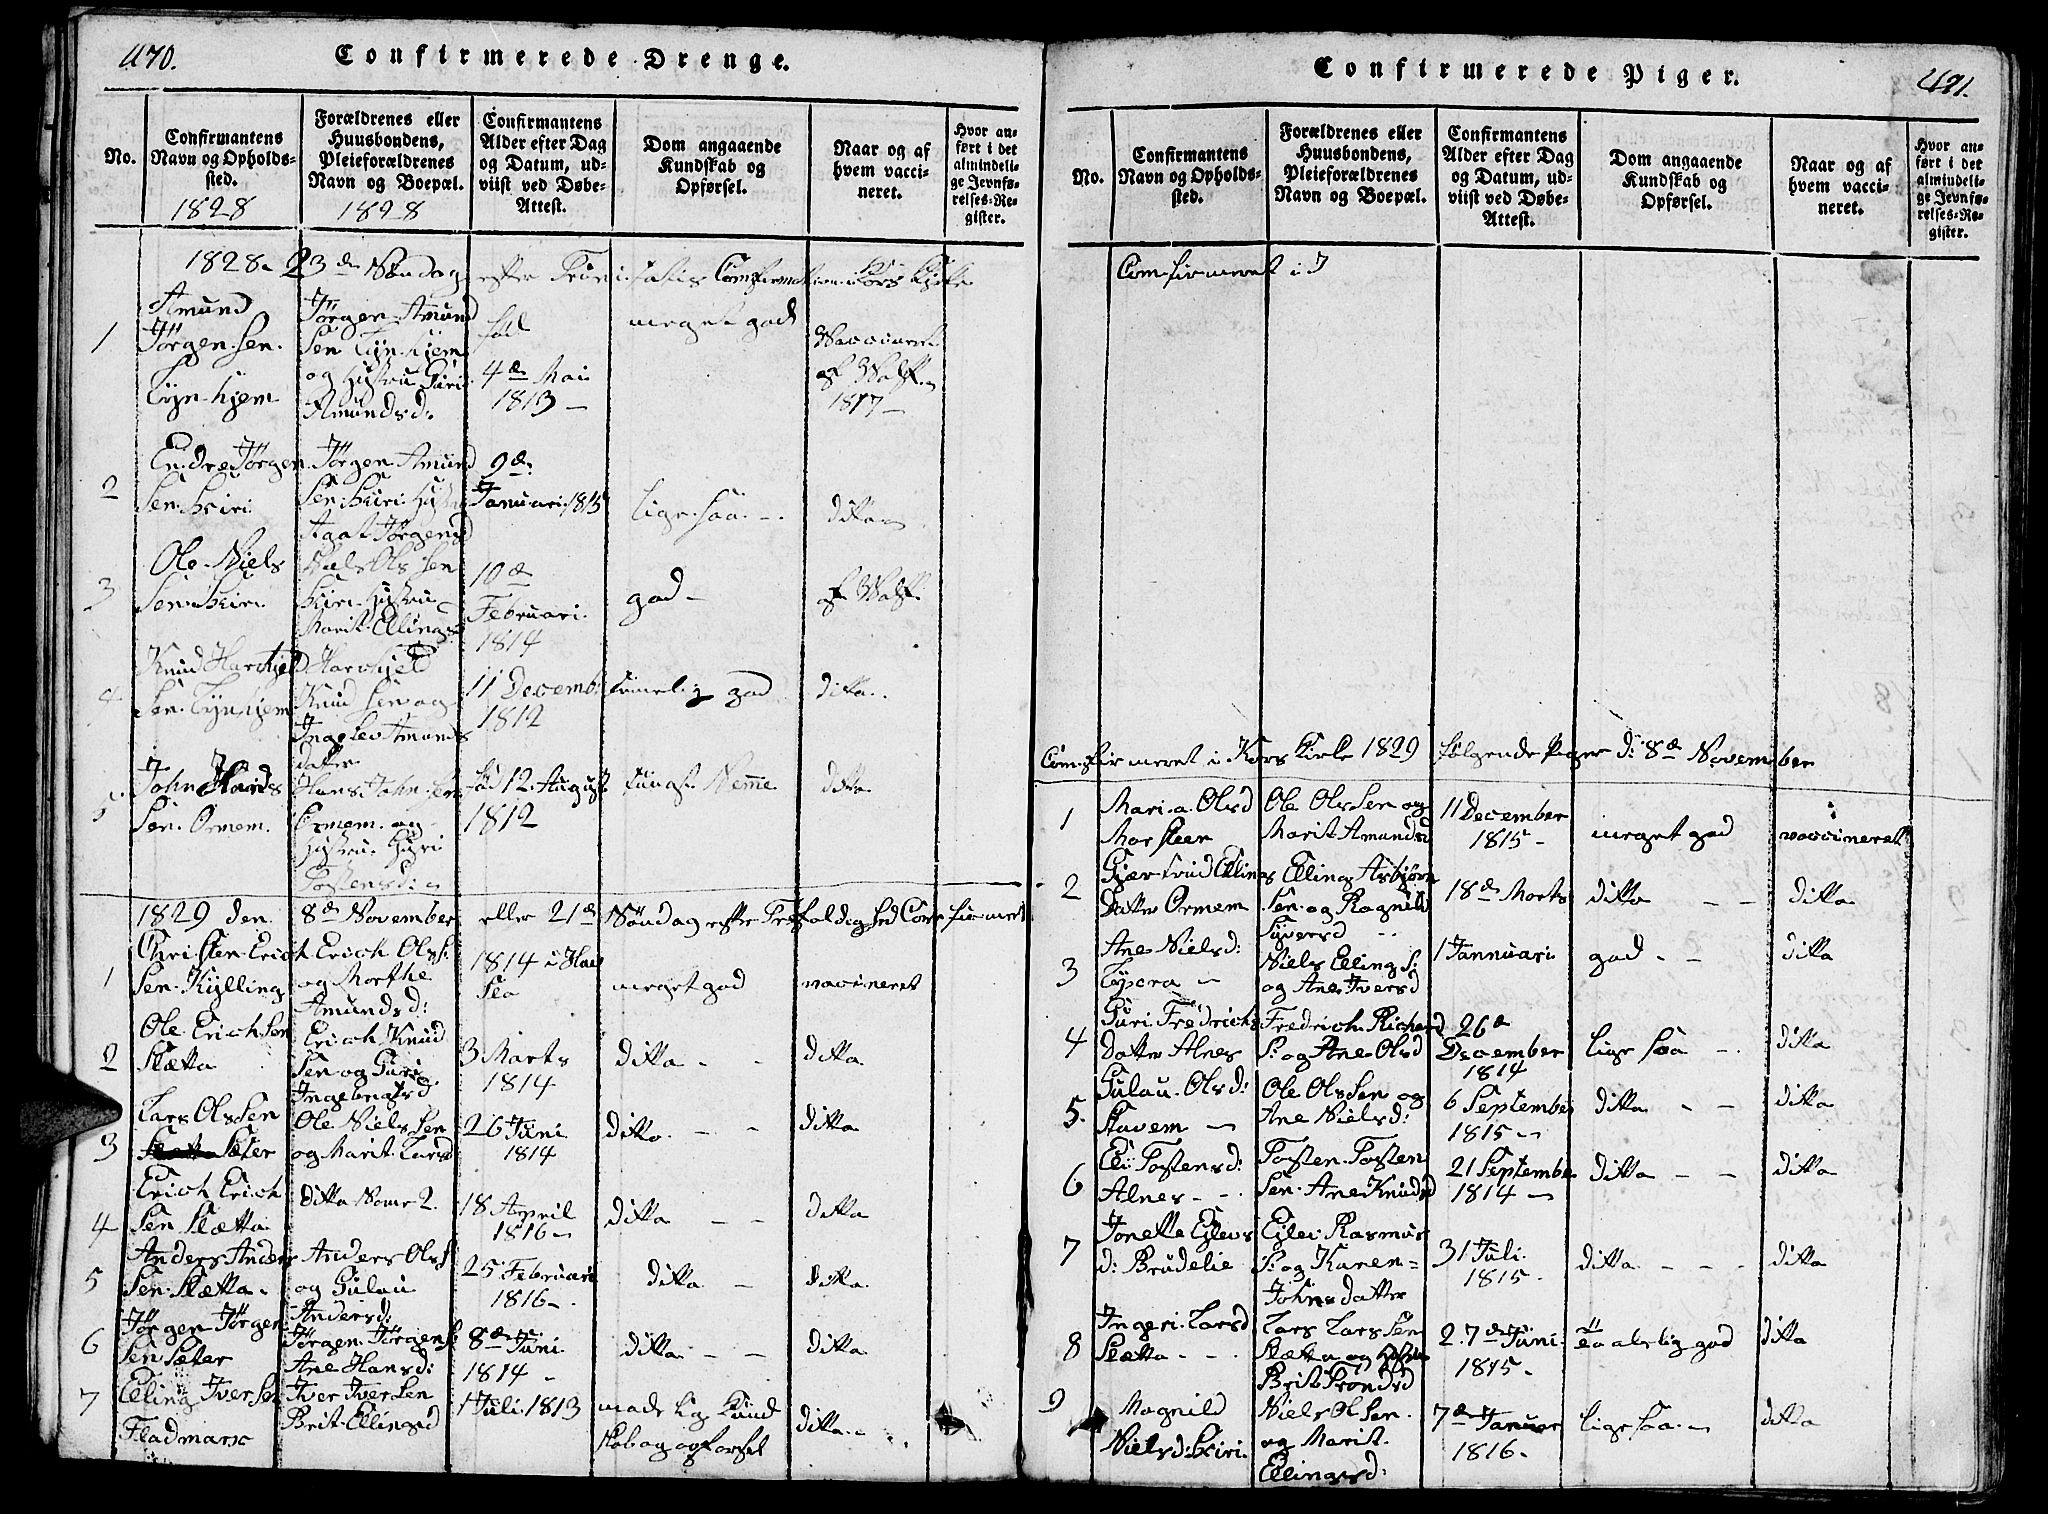 470.
Confirmerede Drenge.
No.
Confirmantens
Navn og Opholds-
sted.
1828
Forældrenes eller
Huusbondens,
Pleieforældrenes
Navn og Boepæl.
1828
Confirmantens
Alder efter Dag
og Datum, ud-
viist ved Døbe-
Attest.
Dom angaaende
Kundskab og
Opførsel.
Naar og af
hvem vacci-
neret.
Hvor an-
ført i det
almindeli-
ge Jevnfø-
relses-Re-
gister.
1828. 23de Søndag efter Confirmation Kors Kirke
1
Amund
Jørgen Sen
Jørgen Amund
Sen
og Hustru Guri
Amundsd:
4de Mai
1813 —
meget god
Vaccineret
af Wolff
1817 —
2
Endre Jørgen
Sen Skiri
Jørgen Amund
Sen Skiri
Jørgensd
9de
Januari 1815
lige saa —
ditta
3
Ole Niels
Sen Skiri
Ols Sen
Skiri Hustru
Marit Ellings
10de
Februari
1814
god —
af Wolff
4
Knud
Sen
Knud Sen og
Amunds
datter
11 Decemb
1812
god
ditta
5
John Hands
Sen. Ormem.
Hans John Sen
Ormem og
Hustru Guri
Tostensd:
fød 12 August
1812
Nemme
ditta
1829 den 8de November eller 21de Søndag efter Trefoldighed Confirmeret
1
Christen Erich
Sen Kylling
Erich Ols S:
og Marthe
Amundsd:
1814
meget god
vaccineret
2
Ole Erich Sen
Slætta
Erich Knud
Sen og Guri
3 Marts
1814
ditta — -
ditta
3
Lars Ols Sen
Sæter
Ole Niels Sen
og Marit Larsd
26 Juni
1814
ditta — —
ditta
4
Erich Erich
Sen Slætta
ditta Nomr 2.
18 April
1816 —
ditta — —
ditta
5
Anders Anders
Sen Slætta
Anders Ols S
og Gulau
Andersd:
25 Februari
1816 —
ditta —
ditta
6
Jørgen Jørgen
Sen Sæter
Jørgen Jørgens S:
Ane Hansd:
8de Juni
1814 -
ditta — —
ditta
7
Elling Iver Sen
Fladmarx
Iver Iver Sen
Brit Ellingsd
1 Juli 1813
maadelig Kund
skab og
ditta
Confirmerede Piger.
No.
Confirmantens
Navn og Opholds-
sted.
Forældrenes eller
Huusbondens,
Pleieforældrenes
Navn og Boepæl.
Confirmantens
Alder efter Dag
og Datum, ud-
viist ved Døbe-
Attest.
Dom angaaende
Kundskab og
Opførsel.
Naar og af
hvem vacci-
neret.
Hvor an-
ført i det
almindeli-
ge Jevnfø-
relses-Re-
gister.
Confirmeret i
Confirmeret i Kors Kirke 1829 følgende Piger d: 8de November
1
Mari.a. Olsd
Marsteen
Ole Ols Sen og
Marit Amundsd
11 December
1815 -
meget god
vaccineret
2
Ellings
Datter Ormem
Elling Asbjørn
Sen og Ragnild
Syversd
18de Marts
ditta — —
ditta
3
Ane Nielsd:
Niels Elling S:
og Ane Iversd
1 Jannuari
god - -
ditta
4
Guri Fredrichs
Datter Alnes
Fredrich Richard
S: og Ane Olsd
26de
December
1814
lige saa —
ditta
5.
Gulau Olsd:
Stavem —
Ole Ols Sen og
Ane Nielsd:
6 September
1815 —
ditta - —
ditta
6
Eli Tostensd:
Alnes - -
Tosten Tosten
Sen Ane Knudsd
21 September
1814 —
ditta — -
ditta
7
Jonette Ejlevs
d: Brudelie
Ejlev Rasmus
S: og Karen =
Johnsdatter
31 Juli
1815 -
ditta - - -
ditta
8
Ingeri Larsd
Slætta - - -
Lars Lars Sen
Slætta og
Brit Trondsd
27de Juni
1815 -
god
ditta
9
Magnild
Nielsd: Skiri
Niels Ol Sen
og Marit
Ellingsd:
7de Januar
1816 -
lige saa —
ditta